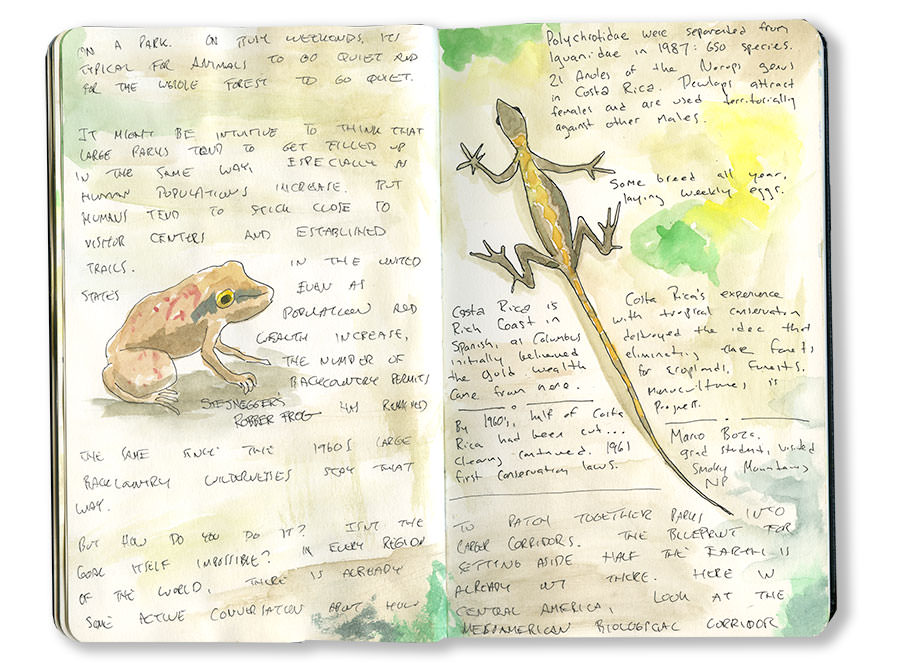 ON A PARK. ON BUSY WEEKENDS, IT'S
TYPICAL FOR ANIMALS TO GO QUIET AND
FOR THE WHOLE FOREST TO GO QUIET.
IT MIGHT BE INTUITIVE TO THINK THAT
LARGE PARKS TEND TO GET FILLED UP
IN THE SAME WAY, ESPECIALLY AS
HUMAN POPULATIONS INCREASE. BUT
HUMANS TEND TO STICK CLOSE TO
VISITOR CENTERS AND ESTABLISHED
TRAILS. IN THE UNITED
STATES EVEN AS
POPULATION AND
WEALTH INCREASE,
THE NUMBER OF
BACKCOUNTRY PERMITS
STEJNEGGER'S
ROBBER FROG
HAS REMAINED
THE SAME SINCE THE 1960S LARGE
BACKCOUNTRY WILDERNESSES STAY THAT
WAY.
BUT HOW DO YOU DO IT? ISN'T THE
GOAL ITSELF IMPOSSIBLE? IN EVERY REGION
OF THE WORLD, THERE IS ALREADY
SOME ACTIVE CONVERSATION ABOUT HOW
Polychrotidae were separated from
Iguanidae in 1987: 650 species.
21 Anoles of the Norops genus
in Costa Rica. Dewlaps attract
females and are used territorially
against other males.
Some breed all year,
laying weekly eggs.
Costa Rica is
Rich Coast in
Spanish, as Columbus
initially believed
the gold wealth
came from here.
By 1960's, half of Costa
Rica had been cut...
Clearing continued. 1961
first conservation laws.
Costa Rica's experience
with tropical conservation
destroyed the idea that
eliminating the forests
for croplands, forests,
monocultures is
progress.
Mario Boza.
grad student, visited
Smoky Mountains
NP
TO PATCH TOGETHER PARKS INTO
LARGER CORRIDORS. THE BLUEPRINT FOR
SETTING ASIDE HALF THE EARTH IS
ALREADY OUT THERE. HERE IN
CENTRAL AMERICA, LOOK AT THE
MESOAMERICAN BIOLOGICAL CORRIDOR